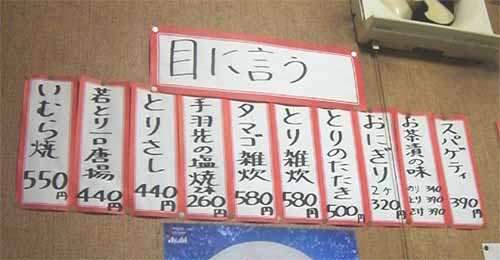 目に言う
スパゲティ 390円
お茶漬の味 のり 340 上り 390 とり 390
おにぎり 2ケ 320円
とりのたたき 500円
とり雑炊 580円
タマゴ雑炊 580円
手羽先の塩焼 2本 260円
とりさし 440円
若とり一口唐揚 440円
いむら焼 550円
Asahi